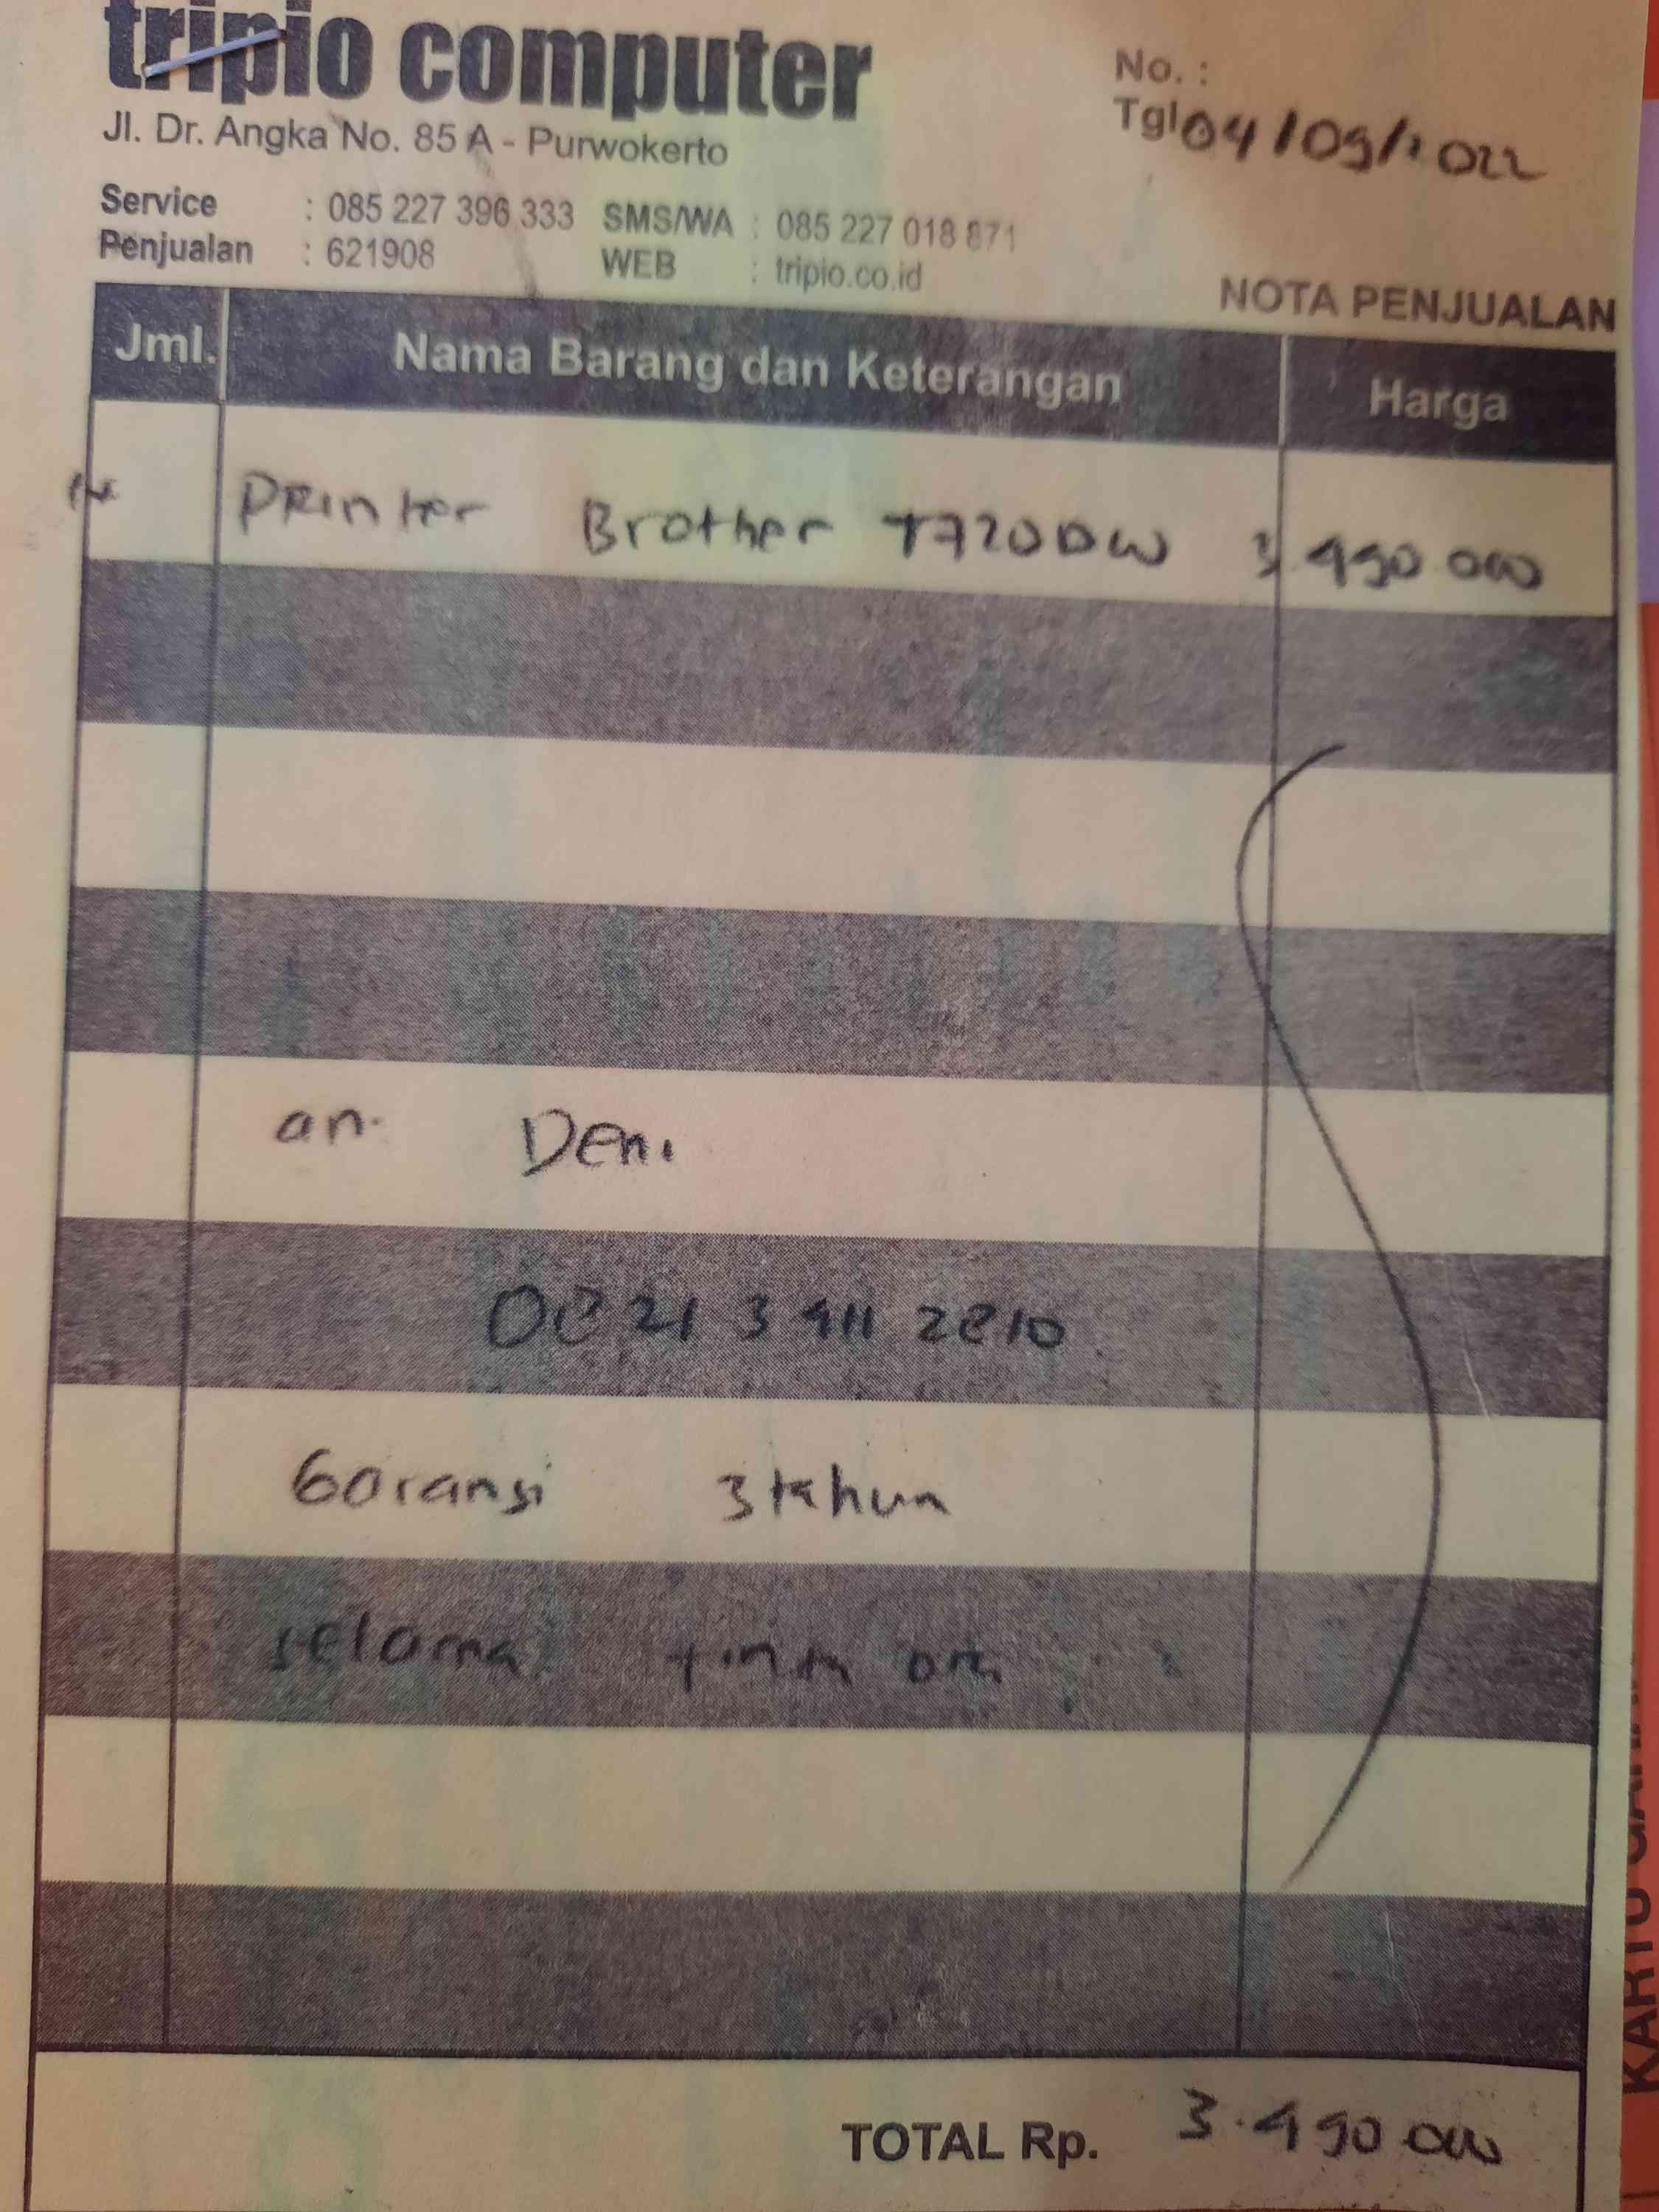 tripio computer
Jl. Dr. Angka No. 85 A - Purwokerto
No. :
Tgl 04/09/2022
Service : 085 227 396 333 SMS/WA : 085 227 018 871
Penjualan : 621908 WEB : tripio.co.id
NOTA PENJUALAN
Jml. Nama Barang dan Keterangan Harga
Printer Brother T720DW 3 490 000
an. Deni
0821 3411 2810
Goransi 3 tahun
selama tinta ori
TOTAL Rp. 3.490 000
KARTU